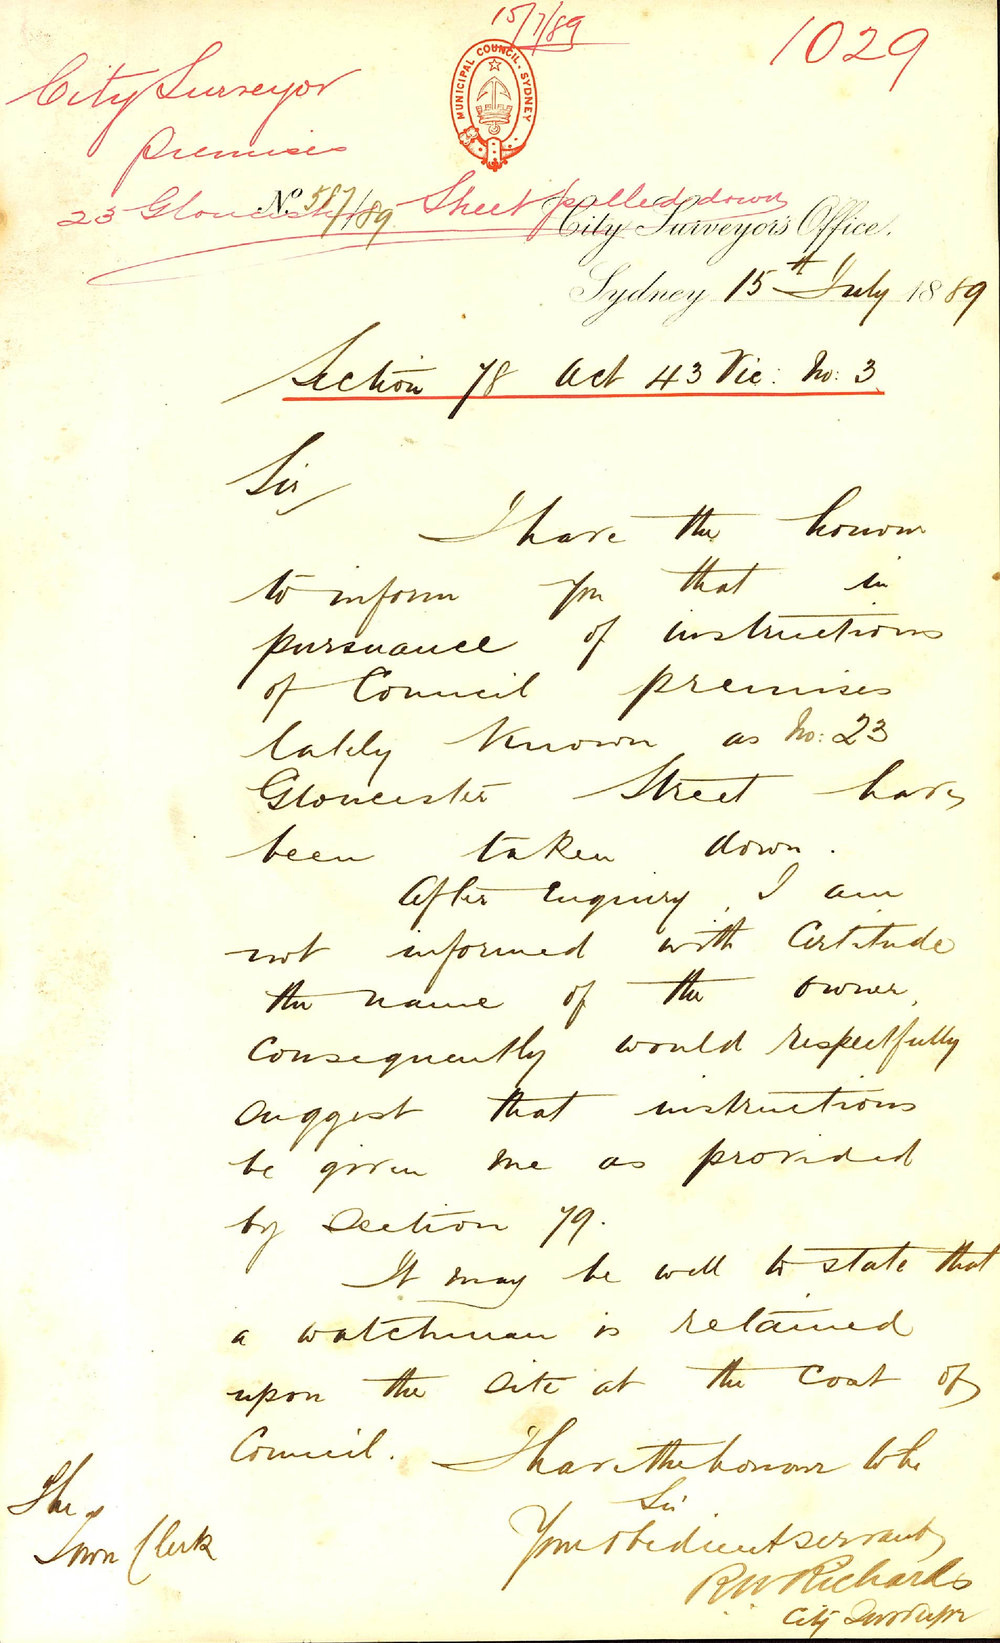 15/7/89
1029
MUNICIPAL COUNCIL. SYDNEY
City Surveyor
Premises
23 Gloucester Street pulled down
No. 587/89.
City Surveyor's Office.
Sydney 15th July 1889
Section 78 Act 43 Vic: No: 3.
Sir,
I have the honour
to inform you that in
pursuance of instructions
of Council premises
lately known as No: 23
Gloucester Street have
been taken down.
After enquiry I am
not informed with certitude
the name of the owner,
consequently would respectfully
suggest that instructions
be given me as provided
by Section 79.
It may be well to state that
a watchman is retained
upon the site at the cost of
Council.
I have the honour to be
Sir
Your obedient servant,
R W Richards
City Surveyor
The
Town Clerk